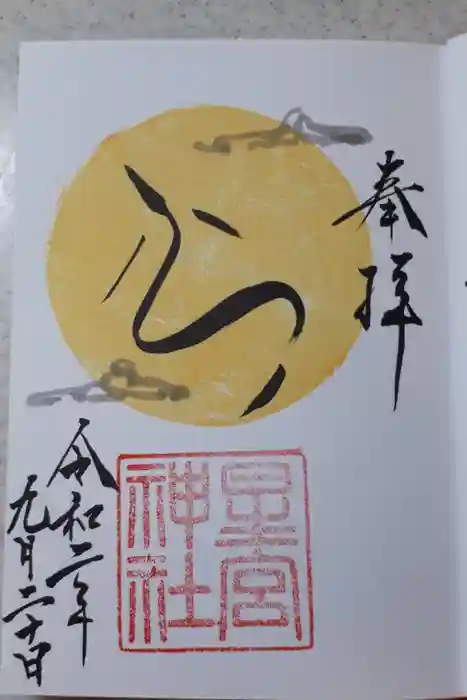 奉拝
星宮
神社
令和二年
九月二十日